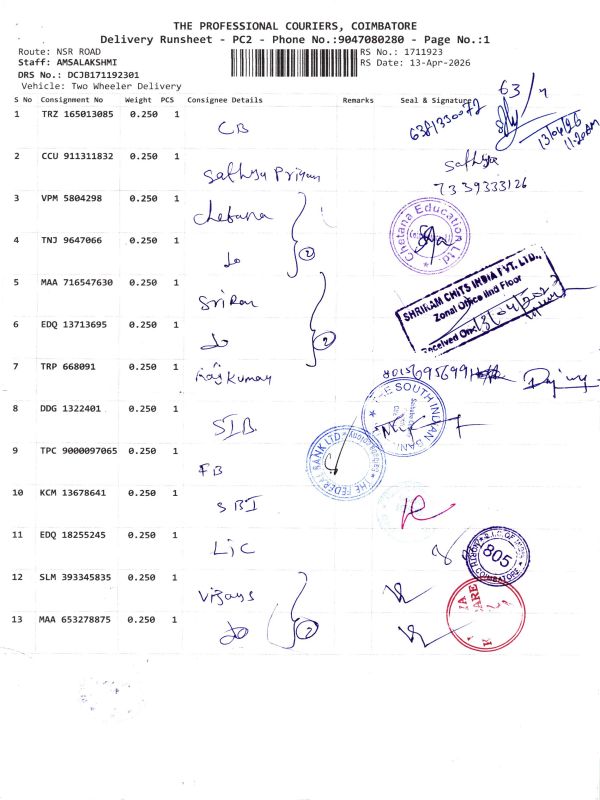 THE PROFESSIONAL COURIERS, COIMBATORE
Delivery Runsheet - PC2 - Phone No.:9047080280 - Page No.:1
Route: NSR ROAD
RS No.: 1711923
Staff: AMSALAKSHMI
RS Date: 13-Apr-2026
DRS No.: DCJB171192301
Vehicle: Two Wheeler Delivery
S No Consignment No Weight PCS Consignee Details Remarks Seal & Signature
63
13/04/26
11.20AM
1 TRZ 165013085 0.250 1 CB
2 CCU 911311832 0.250 1 Sathya Priyan Sathya
7339333126
3 VPM 5804298 0.250 1 Chetana
Chetana Education Ltd
4 TNJ 9647066 0.250 1 do 2
5 MAA 716547630 0.250 1 Sriram
SHRIRAM CHITS INDIA PVT. LTD.,
Zonal Office IInd Floor
Received On
6 EDQ 13713695 0.250 1 do 2
7 TRP 668091 0.250 1 Rajkumar 8015695699
8 DDG 1322401 0.250 1 SIB
THE SOUTH INDIAN BANK
9 TPC 9000097065 0.250 1 FB
THE FEDERAL BANK LTD
10 KCM 13678641 0.250 1 SBI
11 EDQ 18255245 0.250 1 LIC
805
COIMBATORE
12 SLM 393345835 0.250 1 Vijays
13 MAA 653278875 0.250 1 do 2